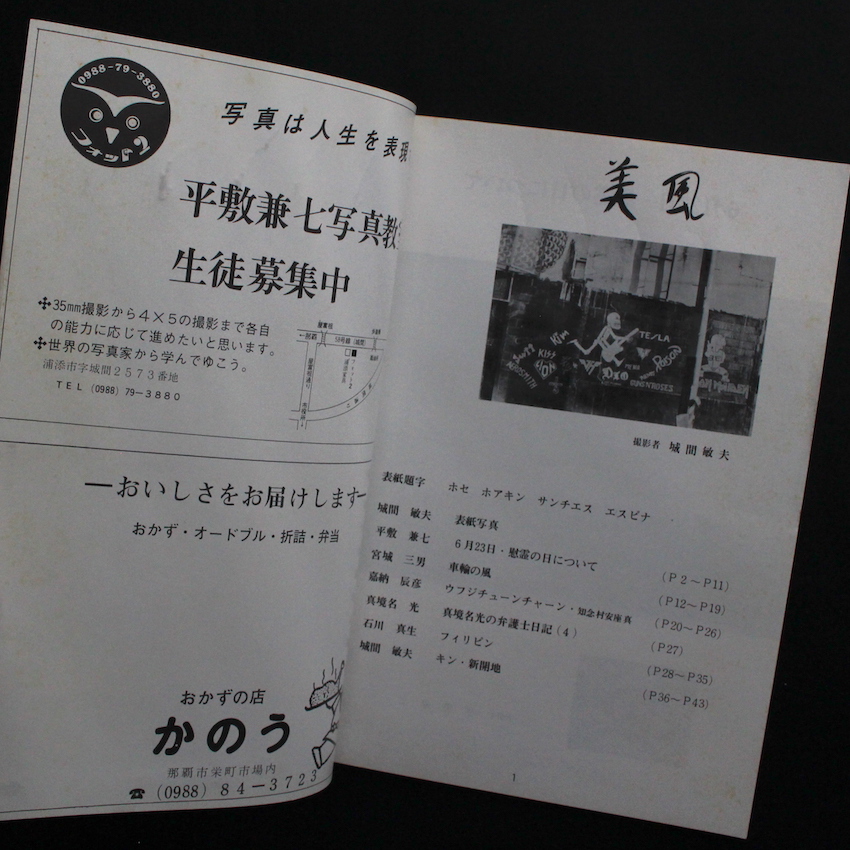 0988-79-3880
フォット2
写真は人生を表現
平敷兼七写真教
生徒募集中
35mm撮影から4×5の撮影まで各自
の能力に応じて進めたいと思います。
世界の写真家から学んでゆこう。
浦添市字城間2573番地
TEL (0988) 79-3880
58号線(城間)
―おいしさをお届けします―
おかず・オードブル・折詰・弁当
おかずの店
かのう
那覇市栄町市場内
☎ (0988) 84-3723
美風
TESLA
Kim
KISS
DIO
POISON
AEROSMITH
GUNS N' ROSES
撮影者 城間敏夫
表紙題字 ホセ ホアキン サンチエス エスピナ
城間 敏夫 表紙写真
平敷 兼七 6月23日・慰霊の日について (P2～P11)
宮城 三男 車輪の風 (P12～P19)
嘉納 辰彦 ウフジチューンチャーン・知念村安座真 (P20～P26)
真境名 光 真境名光の弁護士日記(4) (P27)
石川 真生 フィリピン (P28～P35)
城間 敏夫 キン・新開地 (P36～P43)
1